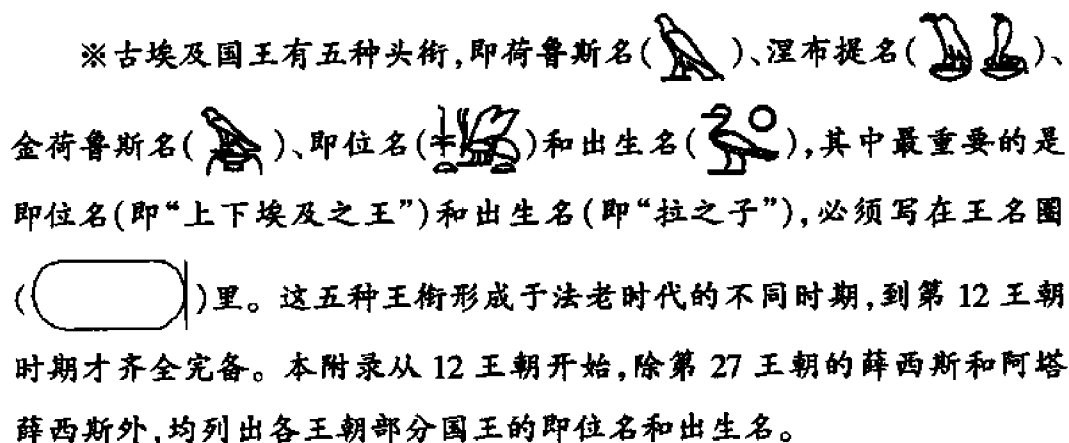 ※古埃及国王有五种头衔,即荷鲁斯名(𓅃)、涅布提名(𓅒)、
金荷鲁斯名(𓅉)、即位名(𓆥)和出生名(𓅭𓇳),其中最重要的是
即位名(即“上下埃及之王”)和出生名(即“拉之子”),必须写在王名圈
(𓍷)里。这五种王衔形成于法老时代的不同时期,到第 12 王朝
时期才齐全完备。本附录从 12 王朝开始,除第 27 王朝的薛西斯和阿塔
薛西斯外,均列出各王朝部分国王的即位名和出生名。